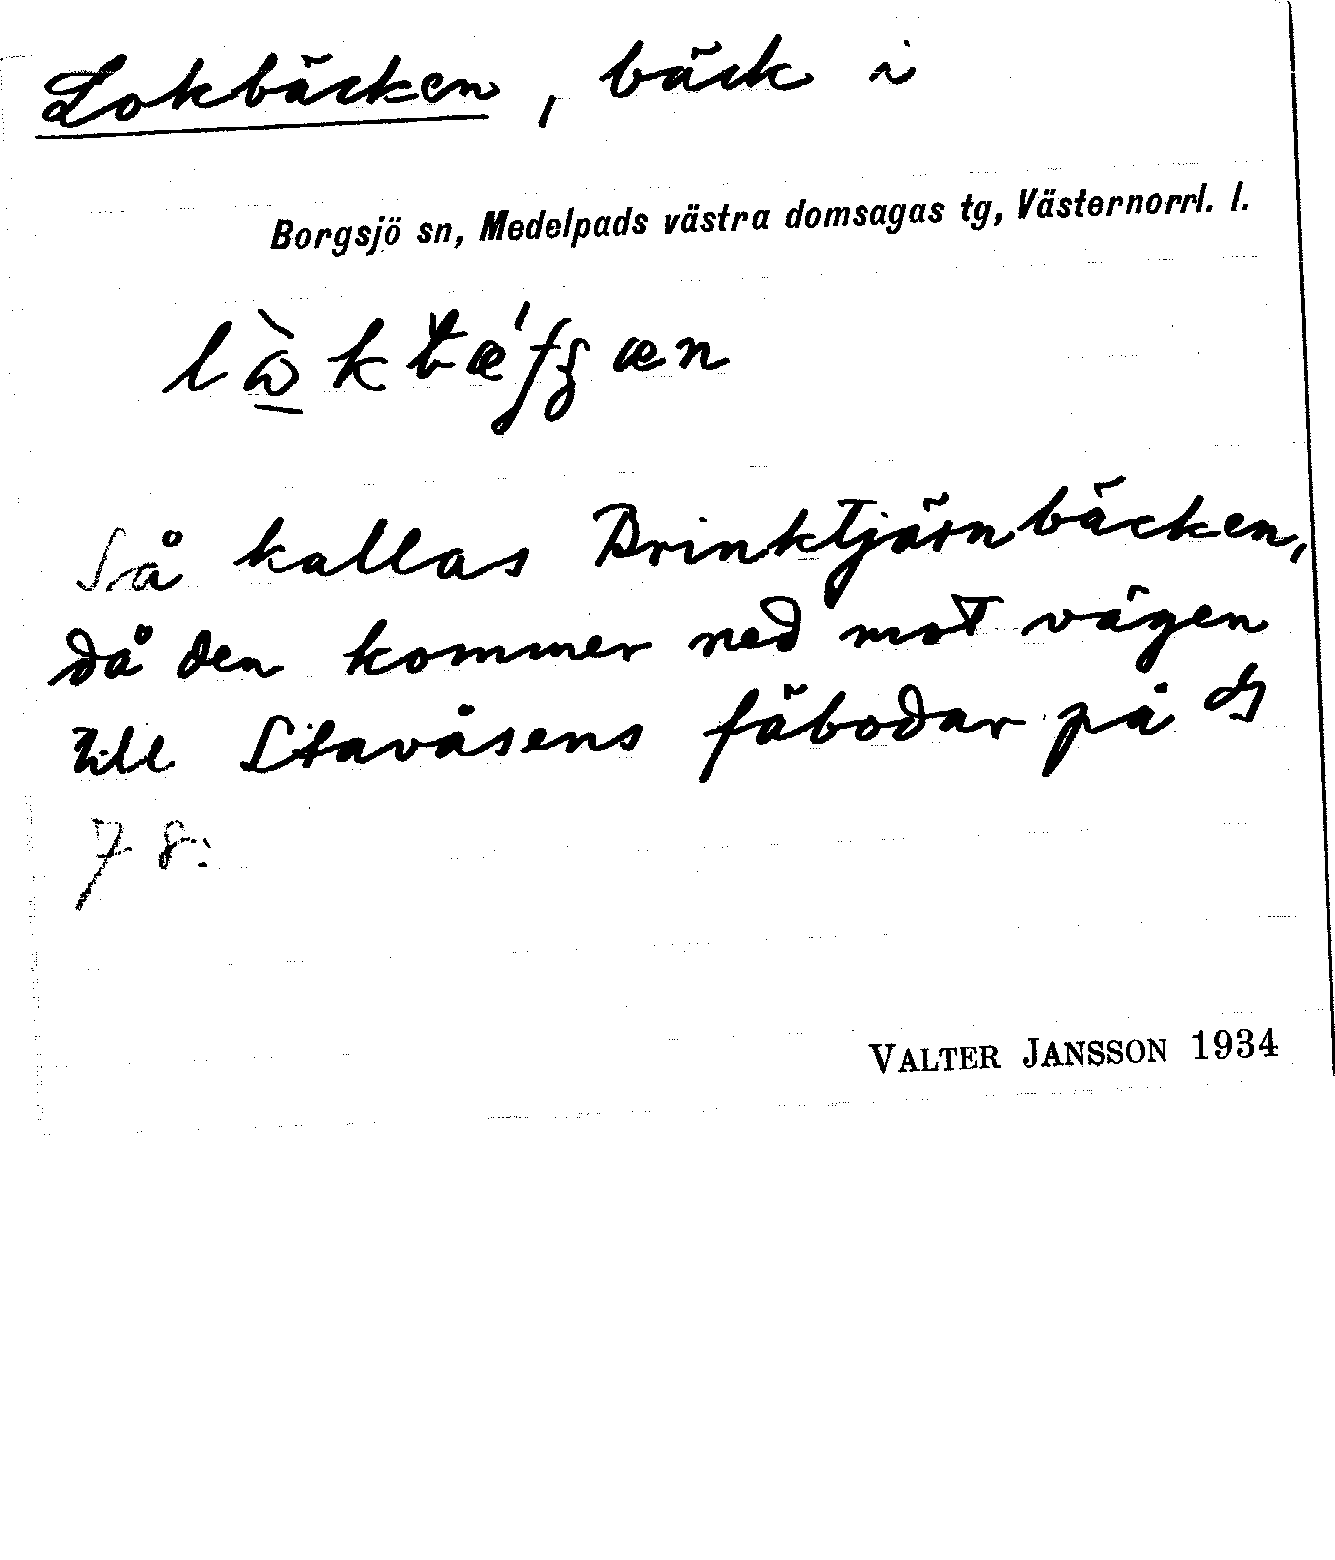 Lokbäcken, bäck i
Borgsjö sn, Medelpads västra domsagas tg, Västernorrl. l.
Så kallas Brinktjärnbäcken,
då den kommer ned mot vägen
till Stavåsens fäbodar på
78.
VALTER JANSSON 1934